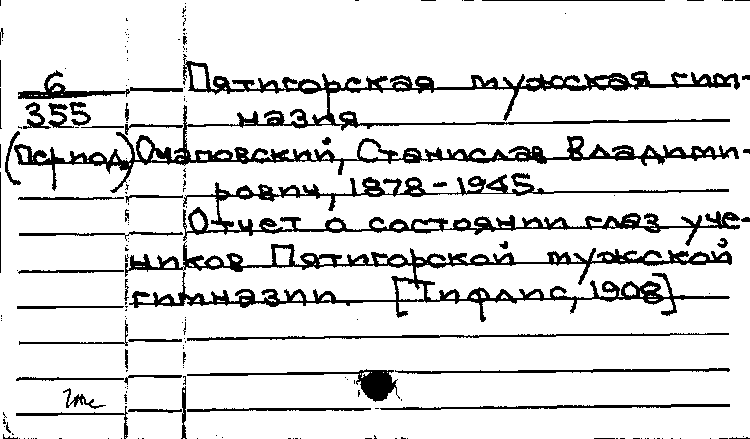 6
355
(Период)
Пятигорская мужская гим-
назия.
Очаповский, Станислав Владими-
рович, 1878-1945.
Отчет о состоянии глаз уче-
ников Пятигорской мужской
гимназии. [Тифлис, 1908].